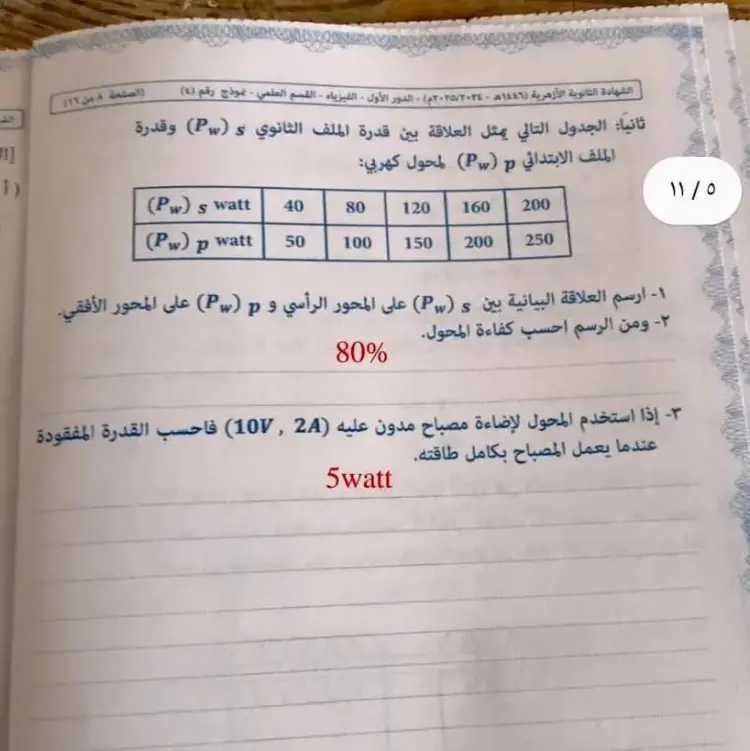 الشهادة الثانوية الأزهرية (١٤٤٦هـ - ٢٠٢٥/٢٠٢٤م) - الدور الأول - الفيزياء - القسم العلمي - نموذج رقم (٤) (الصفحة ٨ من ١٦)
ثانيًا: الجدول التالي يمثل العلاقة بين قدرة الملف الثانوي (Pw) s وقدرة
الملف الابتدائي (Pw) p لمحول كهربي:
١١ / ٥
(Pw) s watt 40 80 120 160 200
(Pw) p watt 50 100 150 200 250
١- ارسم العلاقة البيانية بين (Pw) s على المحور الرأسي و (Pw) p على المحور الأفقي.
٢- ومن الرسم احسب كفاءة المحول.
80%
٣- إذا استخدم المحول لإضاءة مصباح مدون عليه (10V , 2A) فاحسب القدرة المفقودة
عندما يعمل المصباح بكامل طاقته.
5watt